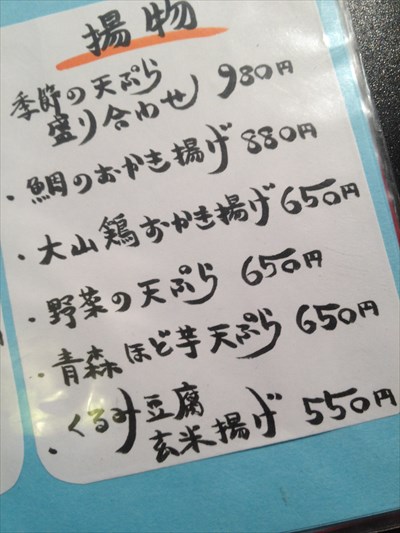 揚物
季節の天ぷら
盛り合わせ 980円
・鯛のおかき揚げ 880円
・大山鶏おかき揚げ 650円
・野菜の天ぷら 650円
・青森ほど芋天ぷら 650円
・くるみ豆腐
玄米揚げ 550円